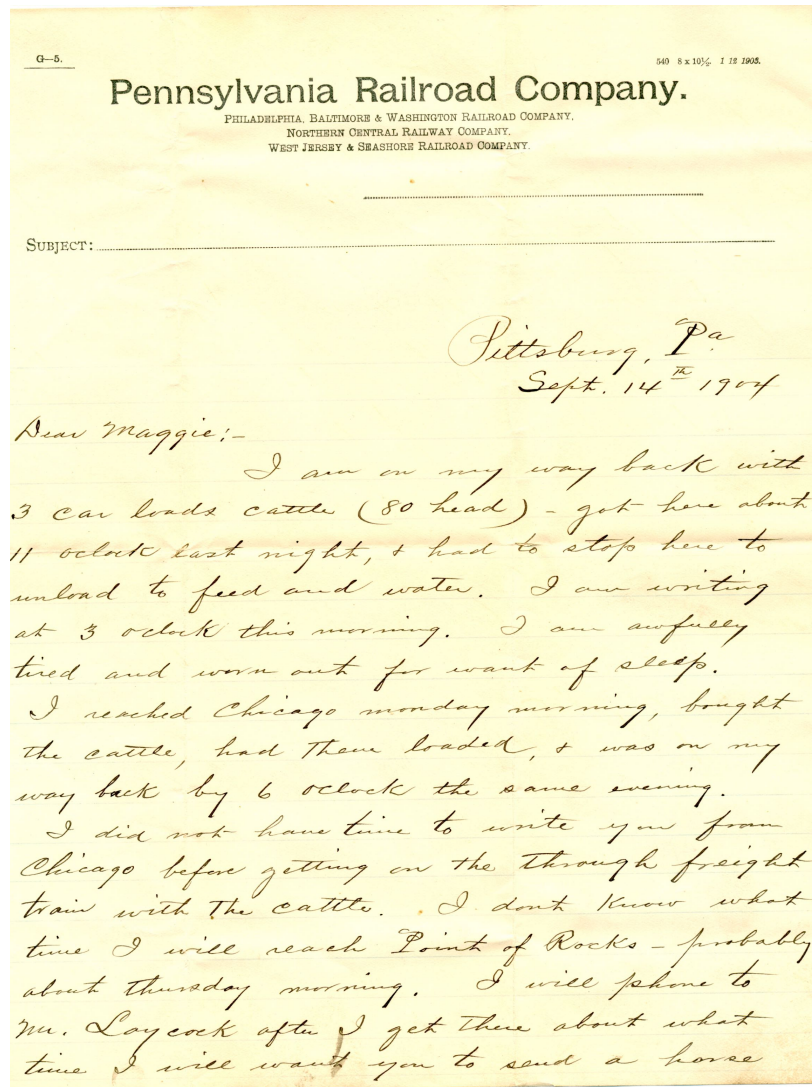 G—5.
540 8 x 10½. 1 12 1903.
Pennsylvania Railroad Company.
PHILADELPHIA, BALTIMORE & WASHINGTON RAILROAD COMPANY.
NORTHERN CENTRAL RAILWAY COMPANY.
WEST JERSEY & SEASHORE RAILROAD COMPANY.
SUBJECT:
Pittsburg, Pa
Sept. 14th 1904
Dear Maggie:-
I am on my way back with
3 car loads cattle (80 head) - got here about
11 oclock last night, & had to stop here to
unload to feed and water. I am writing
at 3 oclock this morning. I am awfully
tired and worn out for want of sleep.
I reached Chicago monday morning, bought
the cattle, had them loaded, & was on my
way back by 6 oclock the same evening.
I did not have time to write you from
Chicago before getting on the through freight
train with the cattle. I dont know what
time I will reach Point of Rocks - probably
about thursday morning. I will phone to
Mr. Laycock after I get there about what
time I will want you to send a horse